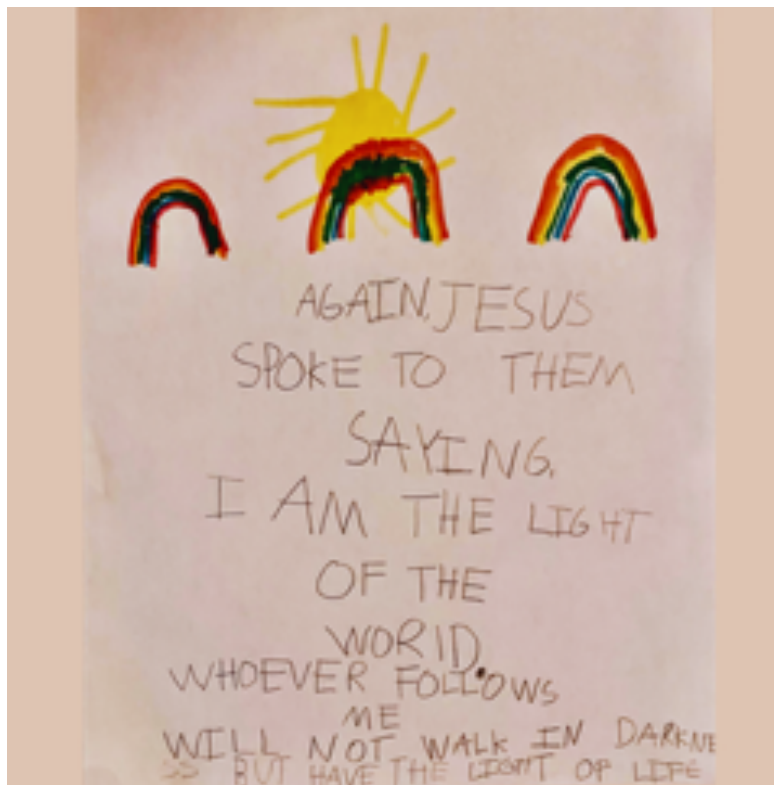 AGAIN, JESUS
SPOKE TO THEM
SAYING,
I AM THE LIGHT
OF THE
WORID.
WHOEVER FOLLOWS
ME
WILL NOT WALK IN DARKNE
SS BUT HAVE THE LIGHT OF LIFE